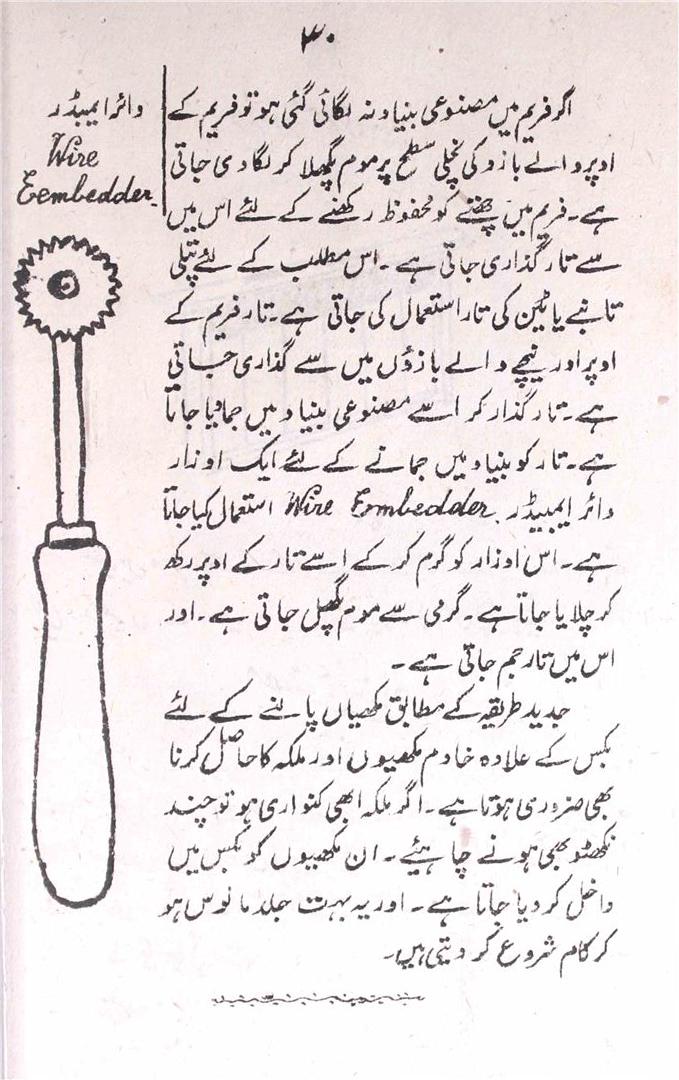 ۳۰
اگر فریم میں مصنوعی بنیاد نہ لگائی گئی ہو تو فریم کے
اوپر والے بازو کی نچلی سطح پر موم پگھلا کر لگا دی جاتی
ہے۔ فریم میں چھتے کو محفوظ رکھنے کے لئے اس میں
سے تار گذاری جاتی ہے۔ اس مطلب کے لئے پتلی
تانبے یا ٹین کی تار استعمال کی جاتی ہے۔ تار فریم کے
اوپر اور نیچے والے بازوؤں میں سے گذاری جاتی
ہے۔ تار گذار کر اسے مصنوعی بنیاد میں جما دیا جاتا
ہے۔ تار کو بنیاد میں جمانے کے لئے ایک اوزار
وائر ایمبیڈر Wire Embedder استعمال کیا جاتا
ہے۔ اس اوزار کو گرم کر کے اسے تار کے اوپر رکھ
کر چلایا جاتا ہے۔ گرمی سے موم پگھل جاتی ہے۔ اور
اس میں تار جم جاتی ہے۔
جدید طریقہ کے مطابق مکھیاں پالنے کے لئے
بکس کے علاوہ خادم مکھیوں اور ملکہ کا حاصل کرنا
بھی ضروری ہوتا ہے۔ اگر ملکہ ابھی کنواری ہو تو چند
نکھٹو بھی ہونے چاہئیے۔ ان مکھیوں کو بکس میں
داخل کر دیا جاتا ہے۔ اور یہ بہت جلد مانوس ہو
کر کام شروع کر دیتی ہیں۔
وائر ایمبیڈر
Wire
Eembedder.